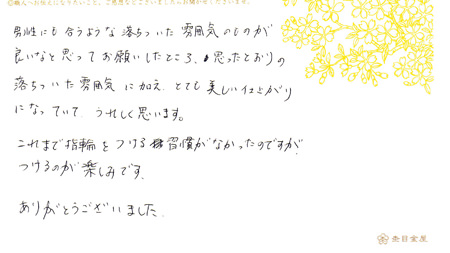 男性にも合うような落ちついた雰囲気のものが
良いなと思ってお願いしたところ、思ったとおりの
落ちついた雰囲気に加え、とても美しい仕上がり
になっていて、うれしく思います。
これまで指輪をつける習慣がなかったのですが、
つけるのが楽しみです。
ありがとうございました。
杢目金屋